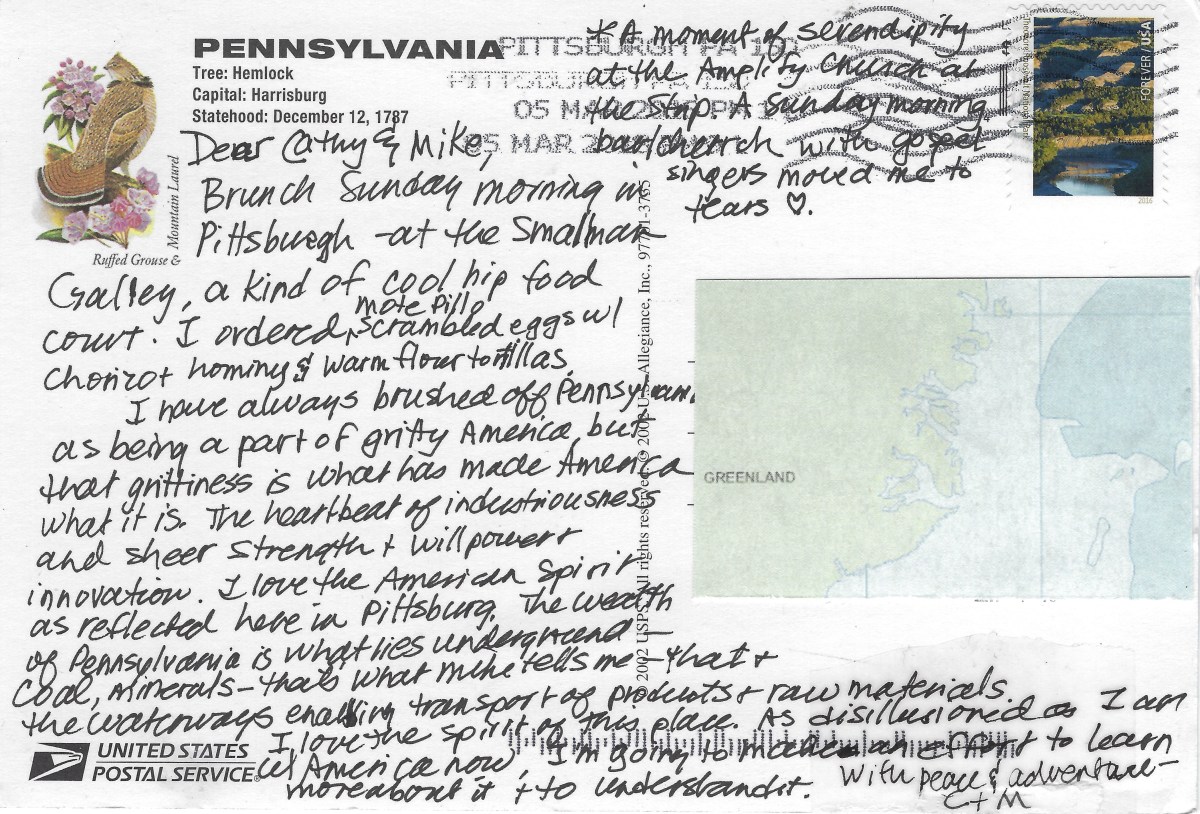 PENNSYLVANIA
Tree: Hemlock
Capital: Harrisburg
Statehood: December 12, 1787
Ruffed Grouse &
Mountain Laurel
PITTSBURGH PA 150
PITTSBURGH PA
05 MAR
05 MAR
FOREVER/USA
2016
*A moment of serendipity
at the Amplify Church at
the Strip. A Sunday morning
bar/church with gospel
singers moved me to
tears ♡.
Dear Cathy & Mike,
Brunch Sunday morning in
Pittsburgh -at the Smallman
Galley, a kind of cool hip food
court. I ordered, mote pillo scrambled eggs w/
chorizo + hominy & warm flour tortillas.
I have always brushed off Pennsylvania
as being a part of gritty America, but
that grittiness is what has made America
what it is. The heartbeat of industriousness
and sheer strength + willpower +
innovation. I love the American spirit
as reflected here in Pittsburg. The wealth
of Pennsylvania is what lies underground –
coal, minerals – thats what Mike tells me – that +
the waterways enabling transport of products + raw materials.
I love the spirit of this place. As disillusioned as I am
w/ America now, I'm going to make an effort to learn
more about it + to understand it.
With peace & adventure –
C + M
© 2002 USPS. All rights reserved. © 2002 U.S. Allegiance, Inc., 97701-3785
GREENLAND
UNITED STATES
POSTAL SERVICE®